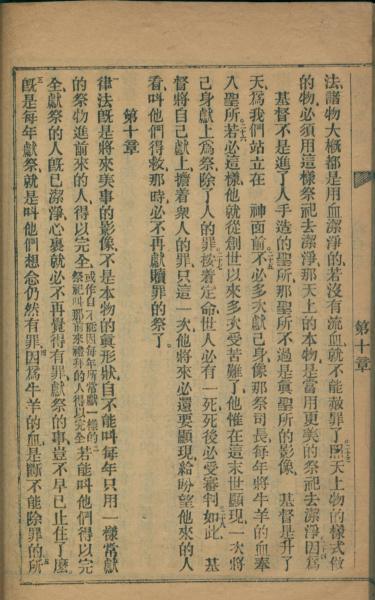 法、諸物大槪都是用血潔淨的、若沒有流血、就不能赦罪了、照天上物的樣式做
的物、必須用這樣祭祀去潔淨、那天上的本物、是當用更美的祭祀去潔淨、因爲
基督不是進了人手造的聖所、那聖所不過是眞聖所的影像、基督是升了
天、爲我們站立在 神面前、不必多次獻己身、像那祭司長、每年將牛羊的血奉
入聖所、若必這樣、他就從創世以來、多次受苦難了、他惟在這末世顯現一次、將
己身獻上爲祭、除了人的罪、按着定命、世人必有一死、死後必受審判、如此、基
督將自己獻上、擔着衆人的罪、只這一次、他將來必還要顯現、給盼望他來的人
看、叫他們得救、那時必不再獻贖罪的祭了。
第十章
律法旣是將來美事的影像、不是本物的眞形狀、自不能叫每年只用一樣常獻
的祭物進前來的人、得以完全、或作自不能因每年所常獻一樣的祭祀叫那前來禮拜的人得以完全若能叫他們得以完
全、獻祭的人旣已潔淨、心裏就必不再覺得有罪、獻祭的事豈不早已止住了麽、
旣是每年獻祭、就是叫他們想念仍然有罪、因爲牛羊的血、是斷不能除罪的、所
第十章